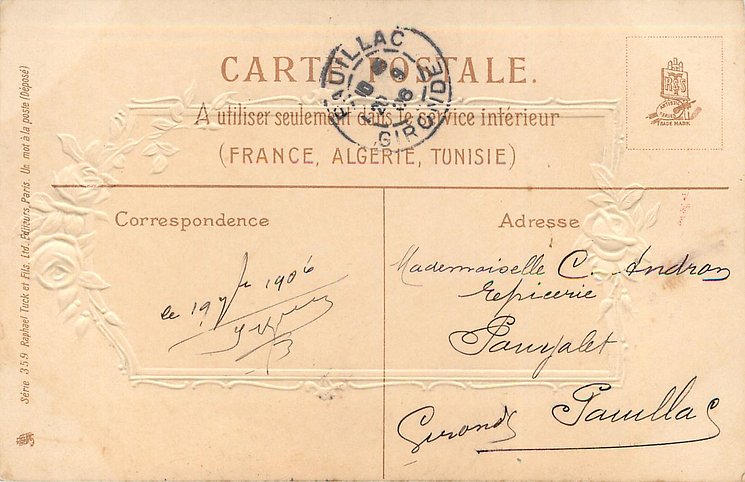 CARTE POSTALE.
A utiliser seulement dans le service intérieur
(FRANCE, ALGERIE, TUNISIE)
PAUILLAC
GIRONDE
R T & S
ARTISTIC SERIES
TRADE MARK
Correspondence
le 19 1906
Adresse
Mademoiselle C. Andron
Epicerie
Pouyalet
Pauillac
Gironde
Série 359 Raphael Tuck et Fils. Ltd. Editeurs, Paris Un mot à la poste (Déposé)